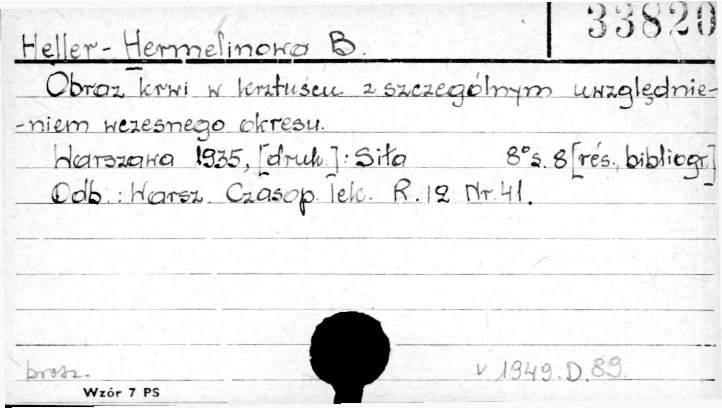 33820
Heller-Hermelinowa B.
Obraz krwi w krztuścu z szczególnym uwzględnie-
-niem wczesnego okresu.
Warszawa 1935, [druk.]: Siła 8° s. 8 [rés., bibliogr.]
Odb.: Warsz. Czasop. lek. R. 12 Nr. 41.
brosz. v 1949.D.89.
Wzór 7 PS